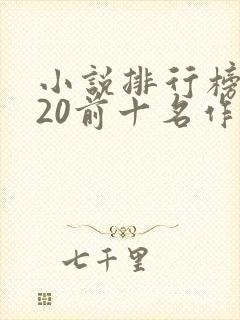 小説排行榜
20前十名作
七千里